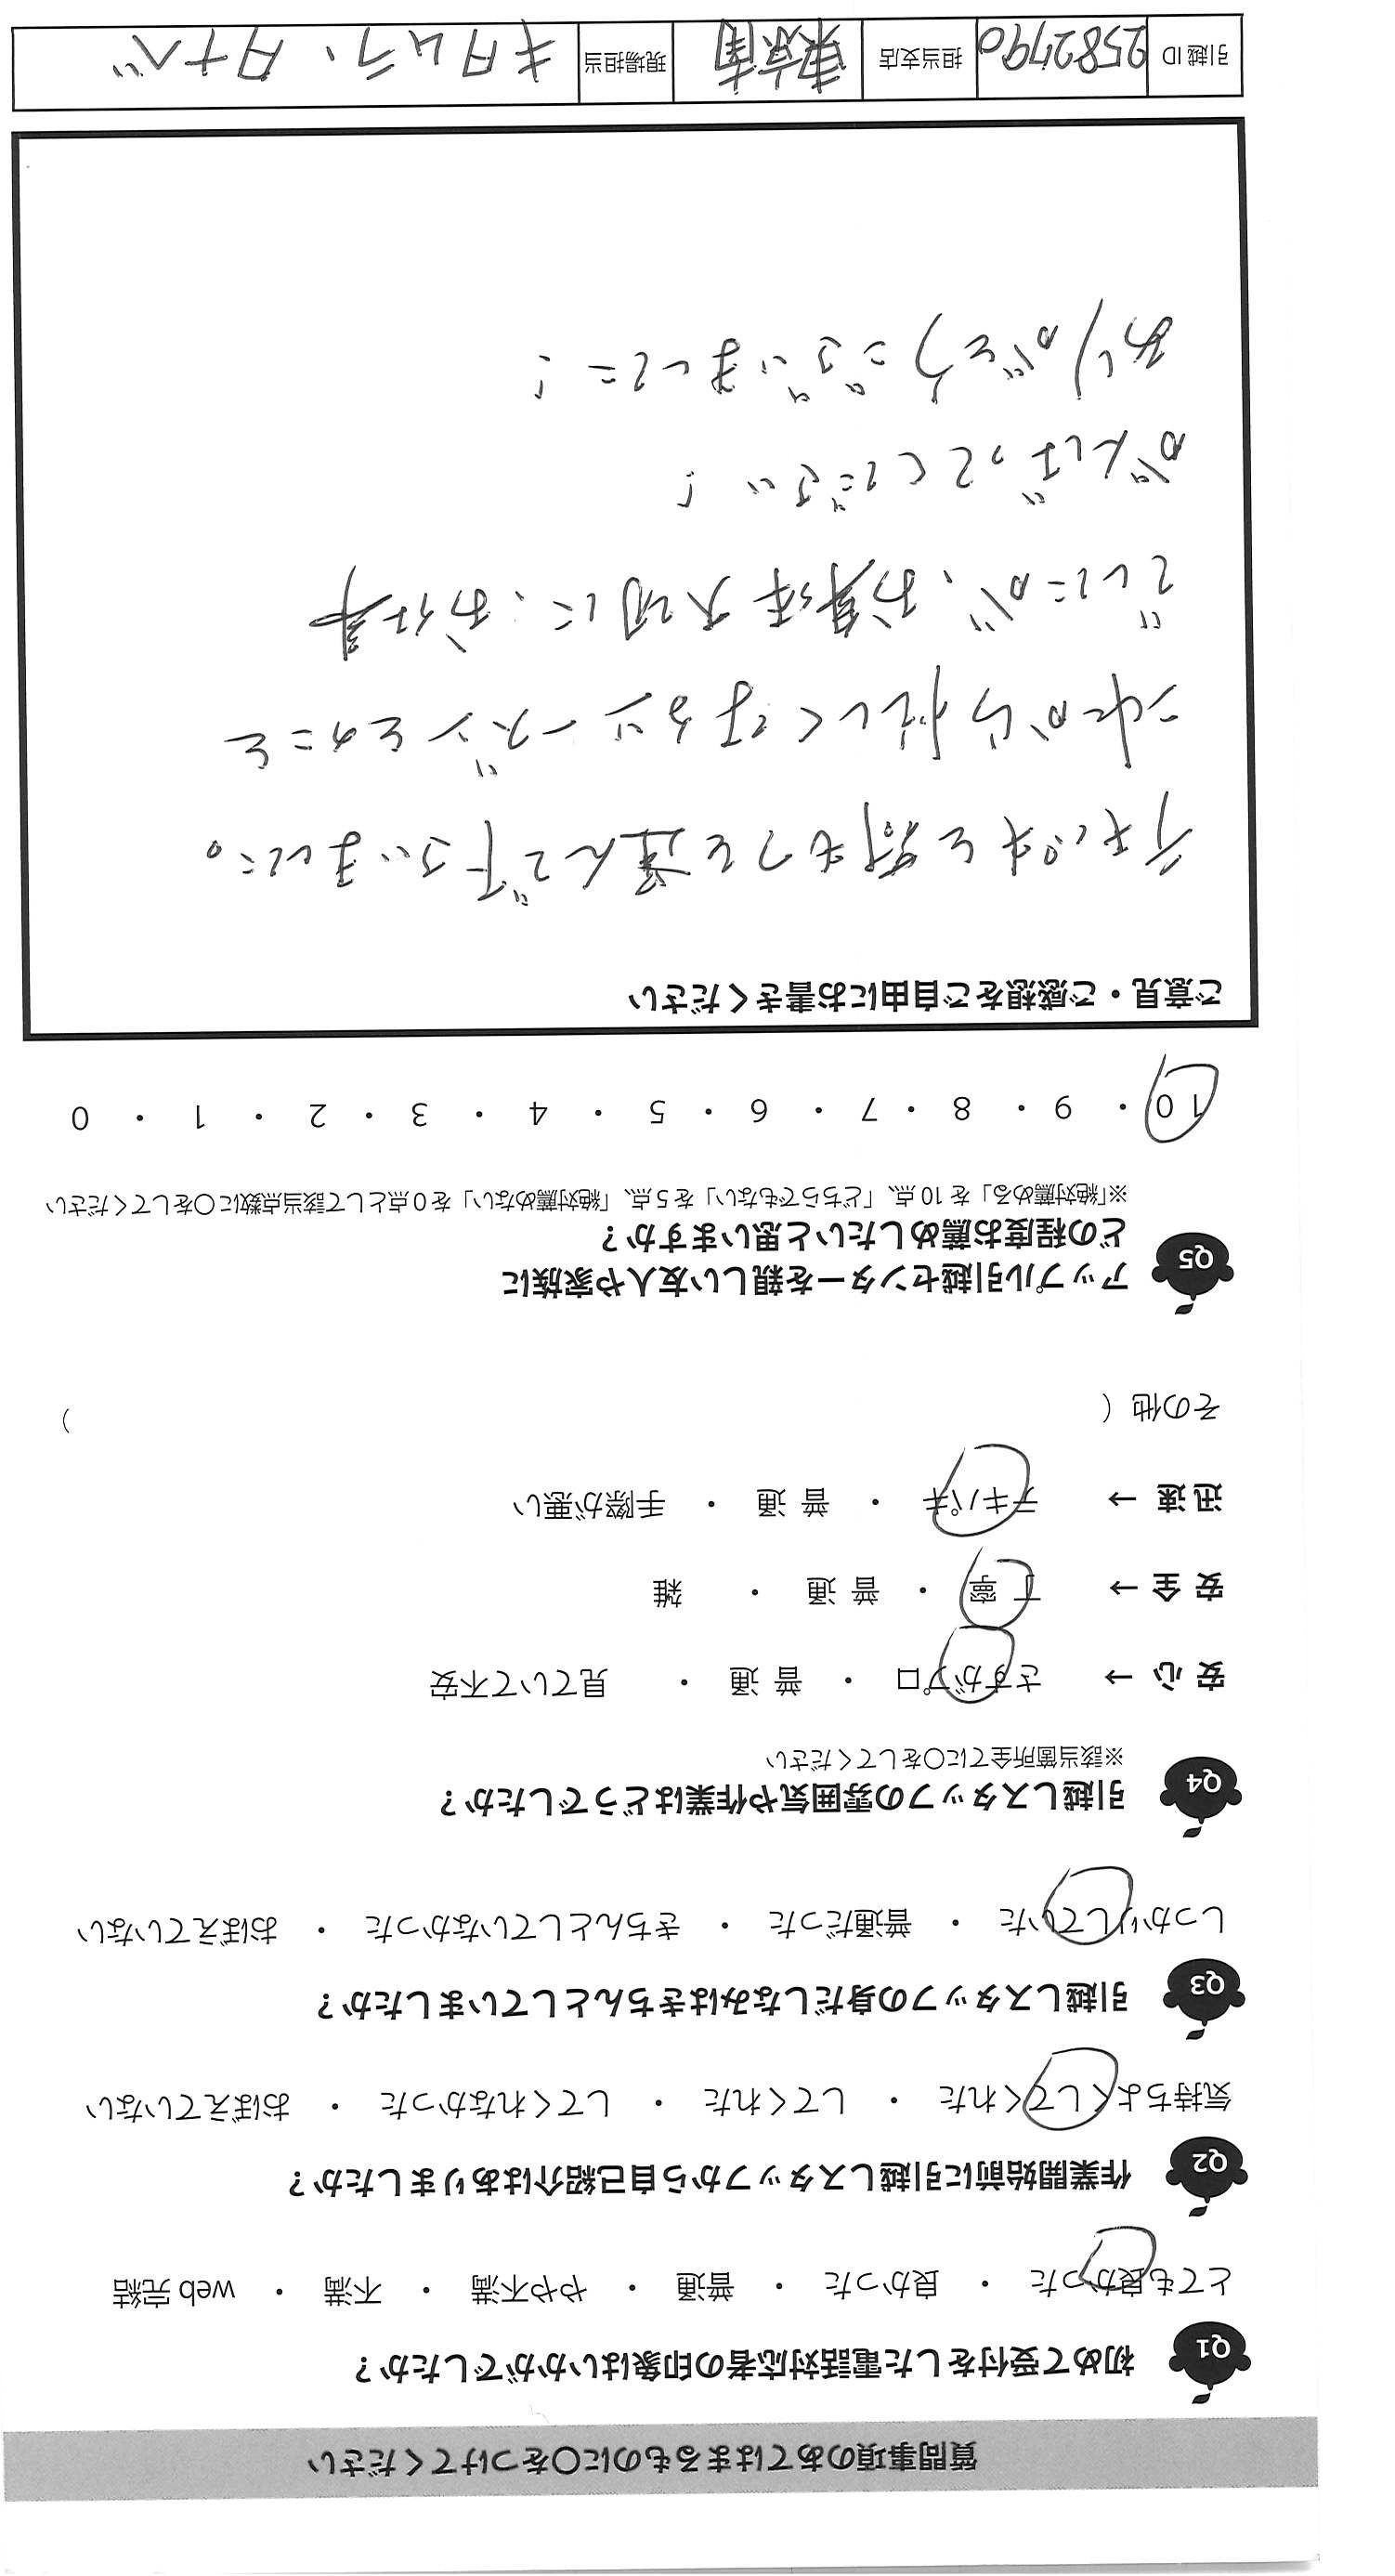 質問事項のあてはまるものに〇をつけてください
Q1 初めて受付をした電話対応者の印象はいかがでしたか？
とても良かった ・ 良かった ・ 普通 ・ やや不満 ・ 不満 ・ web 完結
Q2 作業開始前に引越しスタッフから自己紹介はありましたか？
気持ちよくしてくれた ・ してくれた ・ してくれなかった ・ おぼえていない
Q3 引越しスタッフの身だしなみはきちんとしていましたか？
しっかりしていた ・ 普通だった ・ きちんとしていなかった ・ おぼえていない
Q4 引越しスタッフの雰囲気や作業はどうでしたか？
※該当箇所全てに〇をしてください
安 心 → さすがプロ ・ 普 通 ・ 見ていて不安
安 全 → 丁 寧 ・ 普 通 ・ 雑
迅 速 → テキパキ ・ 普 通 ・ 手際が悪い
その他 ( )
Q5 アップル引越センターを親しい友人や家族に
どの程度お薦めしたいと思いますか？
※「絶対薦める」を 10 点、「どちらでもない」を 5 点、「絶対薦めない」を 0 点として該当点数に〇をしてください
10 ・ 9 ・ 8 ・ 7 ・ 6 ・ 5 ・ 4 ・ 3 ・ 2 ・ 1 ・ 0
ご意見・ご感想をご自由にお書きください
テキパキと荷もつを運んで下さいました。
これから忙しくなるシーズンとのこと
でしたが、お身体大切に、お仕事
がんばってください！
ありがとうございました！
引越 ID 2582790 担当支店 東京南 現場担当 キタムラ、タナベ